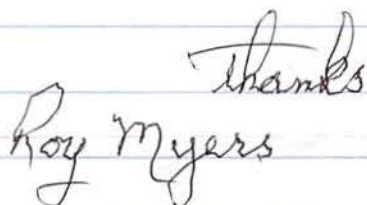 Thanks
Roy Myers